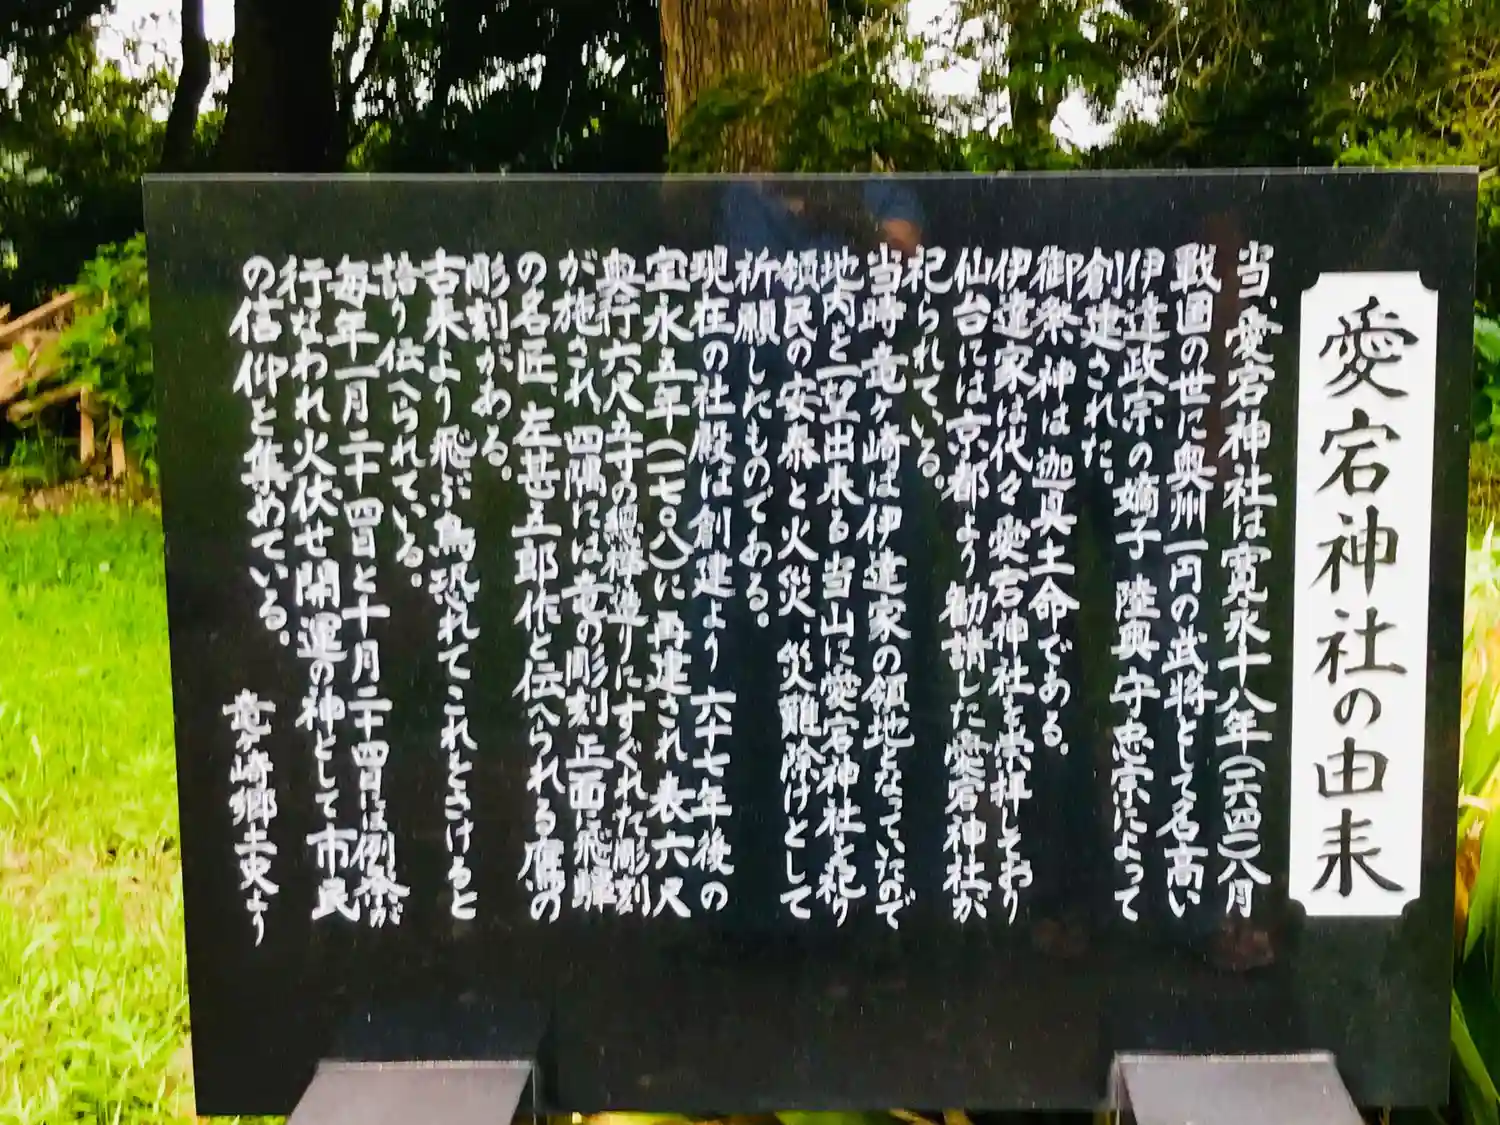 愛宕神社の由来
当、愛宕神社は寛永十八年(一六四一)八月
戦国の世に奥州一円の武将として名高い
伊達政宗の嫡子 陸奥守忠宗によって
創建された。
御祭神は迦具土命である。
伊達家は代々愛宕神社を崇拝しており
仙台には京都より勧請した愛宕神社が
祀られている。
当時 竜ヶ崎は伊達家の領地となっていたので
地内を一望出来る当山に愛宕神社を祀り
領民の安泰と火災、災難除けとして
祈願したものである。
現在の社殿は創建より 六十七年後の
宝永五年(一七〇八)に再建され表六尺
奥行六尺五寸の總欅造りにすぐれた彫刻
が施され、四隅には竜の彫刻正面に飛
の名匠、左甚五郎作と伝へられる鷹の
彫刻がある。
古来より飛ぶ鳥恐れてこれをさけると
語り伝へられている。
毎年一月二十四日と十月二十四日は例祭が
行なわれ火伏せ開運の神として市民
の信仰を集めている。
竜ヶ崎郷土史より